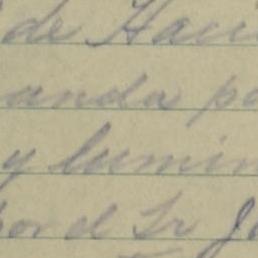 de Haci
anda pa
y lumin
por el Sr J